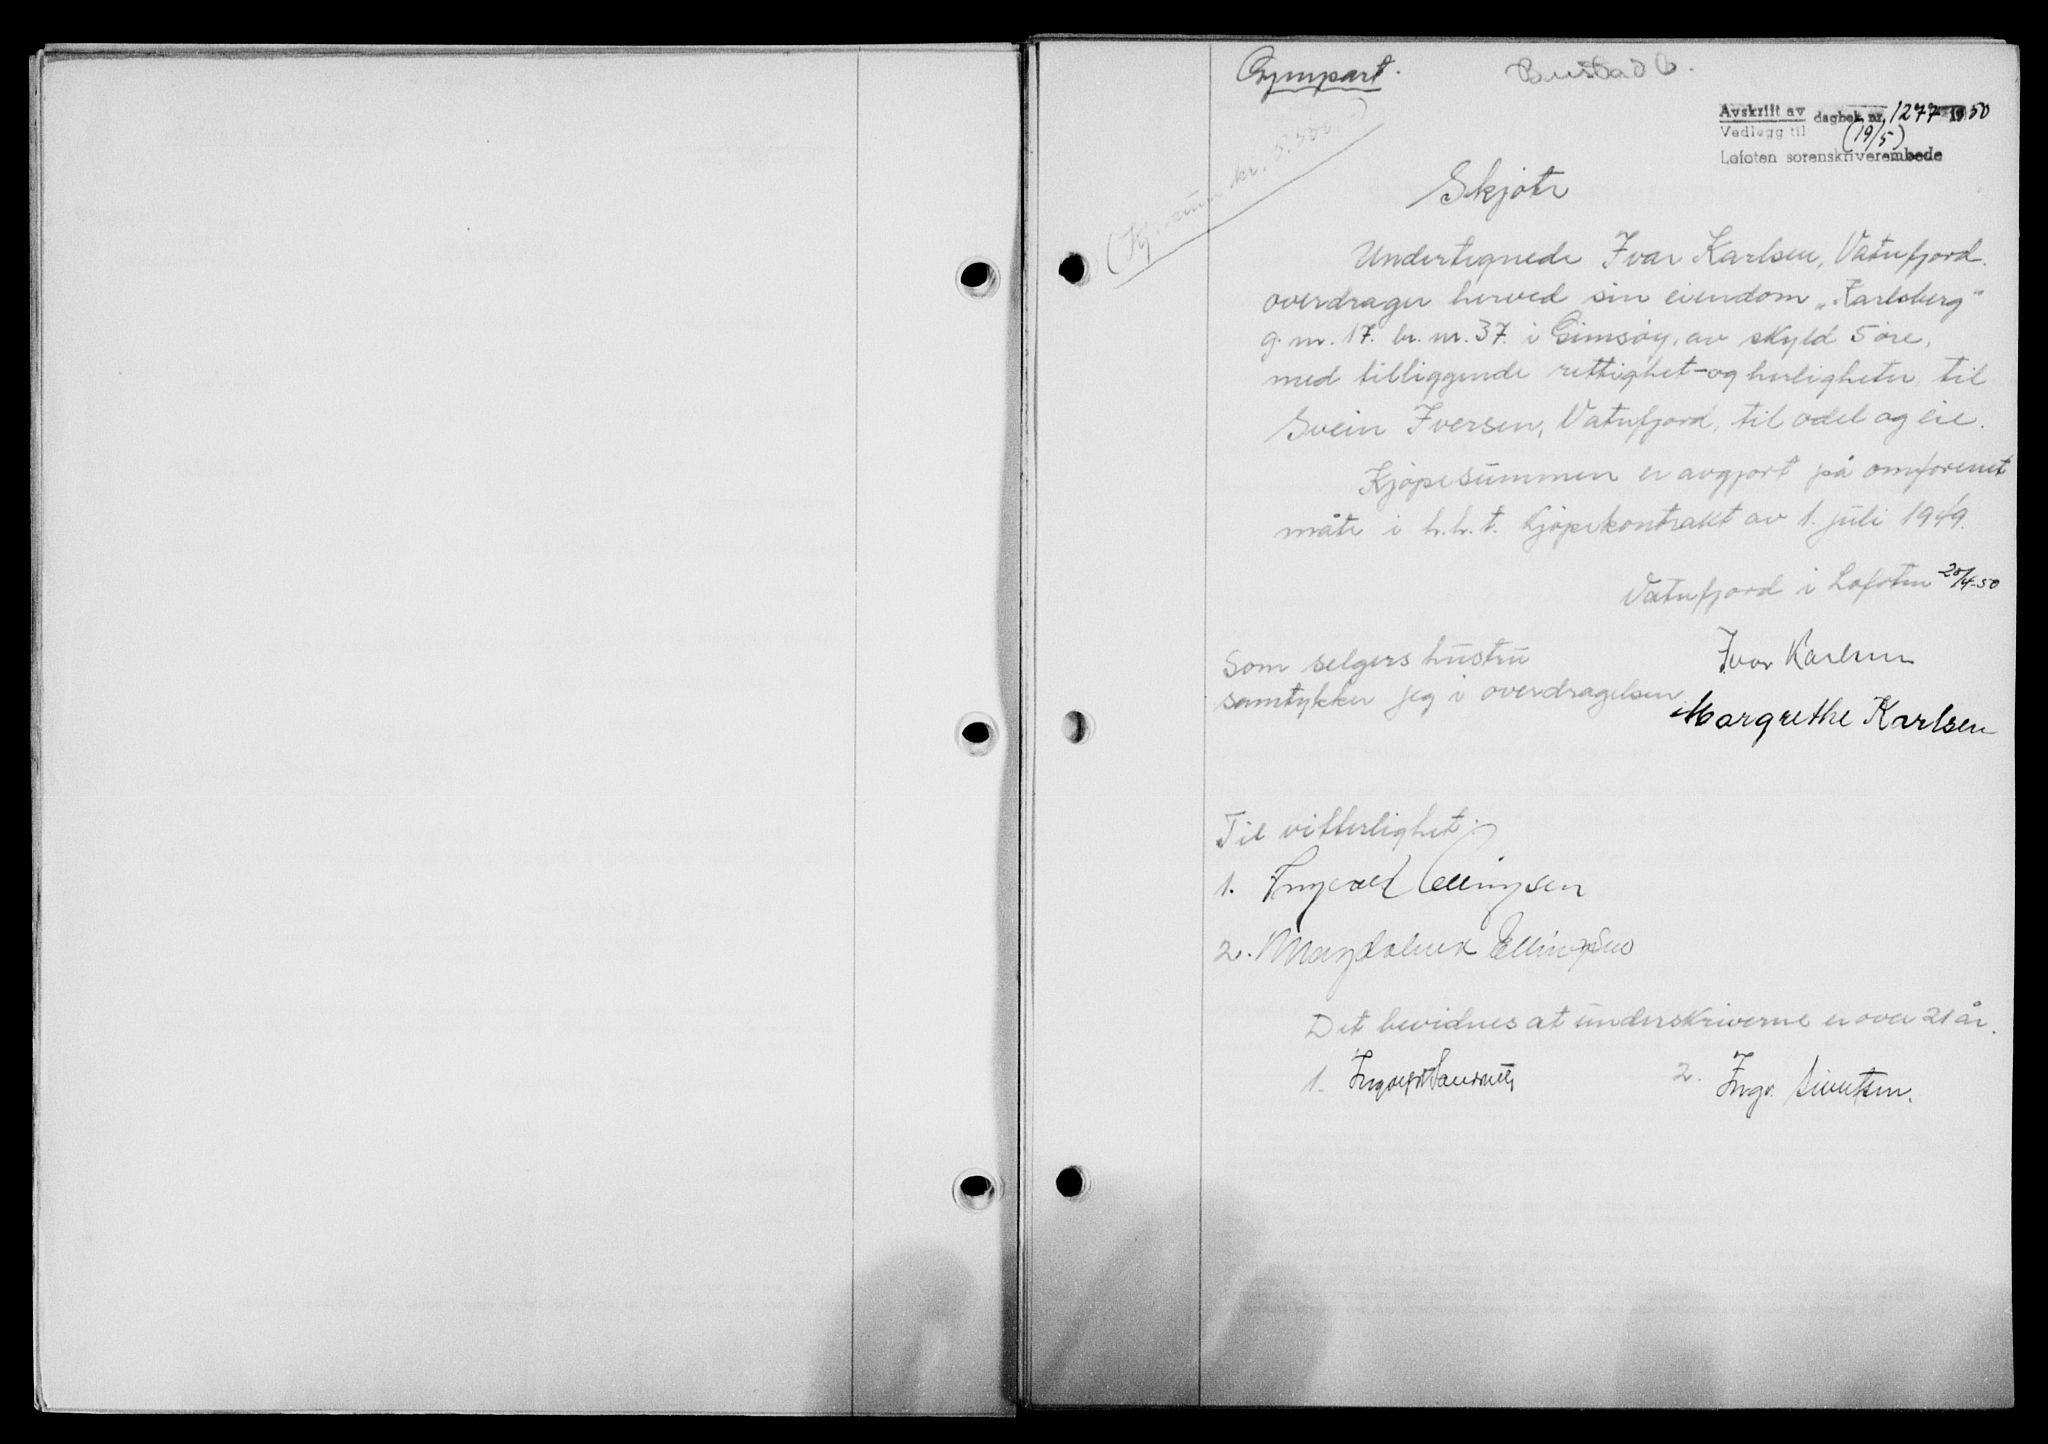 Gjenpart.
Bustad
Avskrift av
Vedlegg til
dagbok nr. 1277 1950
(19/5)
Lofoten sorenskriverembede
(Kj. sum kr. 3.500,-)
Skjøte
Undertegnede Ivar Karlsen, Vatnfjord.
overdrager herved sin eiendom „Karlsberg"
g. nr. 17. br. nr. 37. i Gimsøy, av skyld 5 øre,
med tilliggende rettighet- og herligheter, til
Svein Iversen, Vatnfjord, til odel og eie.
Kjøpesummen er avgjort på omforenet
måte i h.h.t. kjøpekontrakt av 1. juli 1949.
Vatnfjord i Lofoten 20/4-50
Ivar Karlsen
Som selgers hustru
samtykker jeg i overdragelsen.
Margrethe Karlsen
Til vitterlighet:
1. Ingvald Ellingsen
2. Magdalena Ellingsen
Det bevidnes at underskriverne er over 21 år.
1.
2. Ingv. Sivertsen.